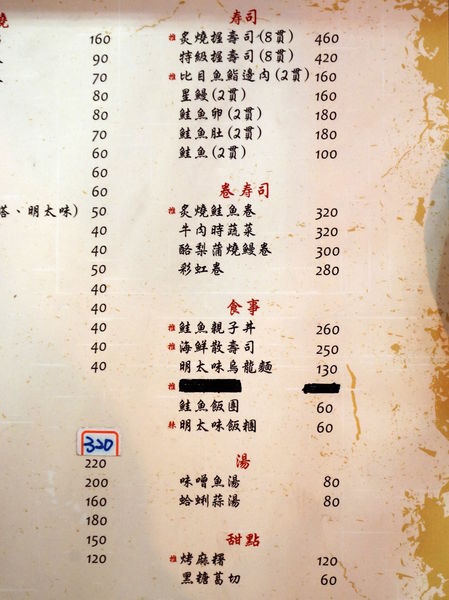 燒
160
90
70
80
80
70
60
60
60
塔、明太味) 50
40
40
50
40
40
40
40
40
320
220
200
160
180
150
120
寿司
推 炙燒握壽司(8貫) 460
特級握壽司(8貫) 420
推 比目魚鮨邊肉(2貫) 160
星鰻(2貫) 160
鮭魚卵(2貫) 180
鮭魚肚(2貫) 180
鮭魚(2貫) 100
卷寿司
推 炙燒鮭魚卷 320
牛肉時蔬菜 320
酪梨蒲燒鰻卷 300
彩虹卷 280
食事
推 鮭魚親子丼 260
推 海鮮散壽司 250
明太味烏龍麵 130
推
鮭魚飯團 60
辣 明太味飯糰 60
湯
味噌魚湯 80
蛤蜊蒜湯 80
甜點
推 烤麻糬 120
黑糖葛切 60